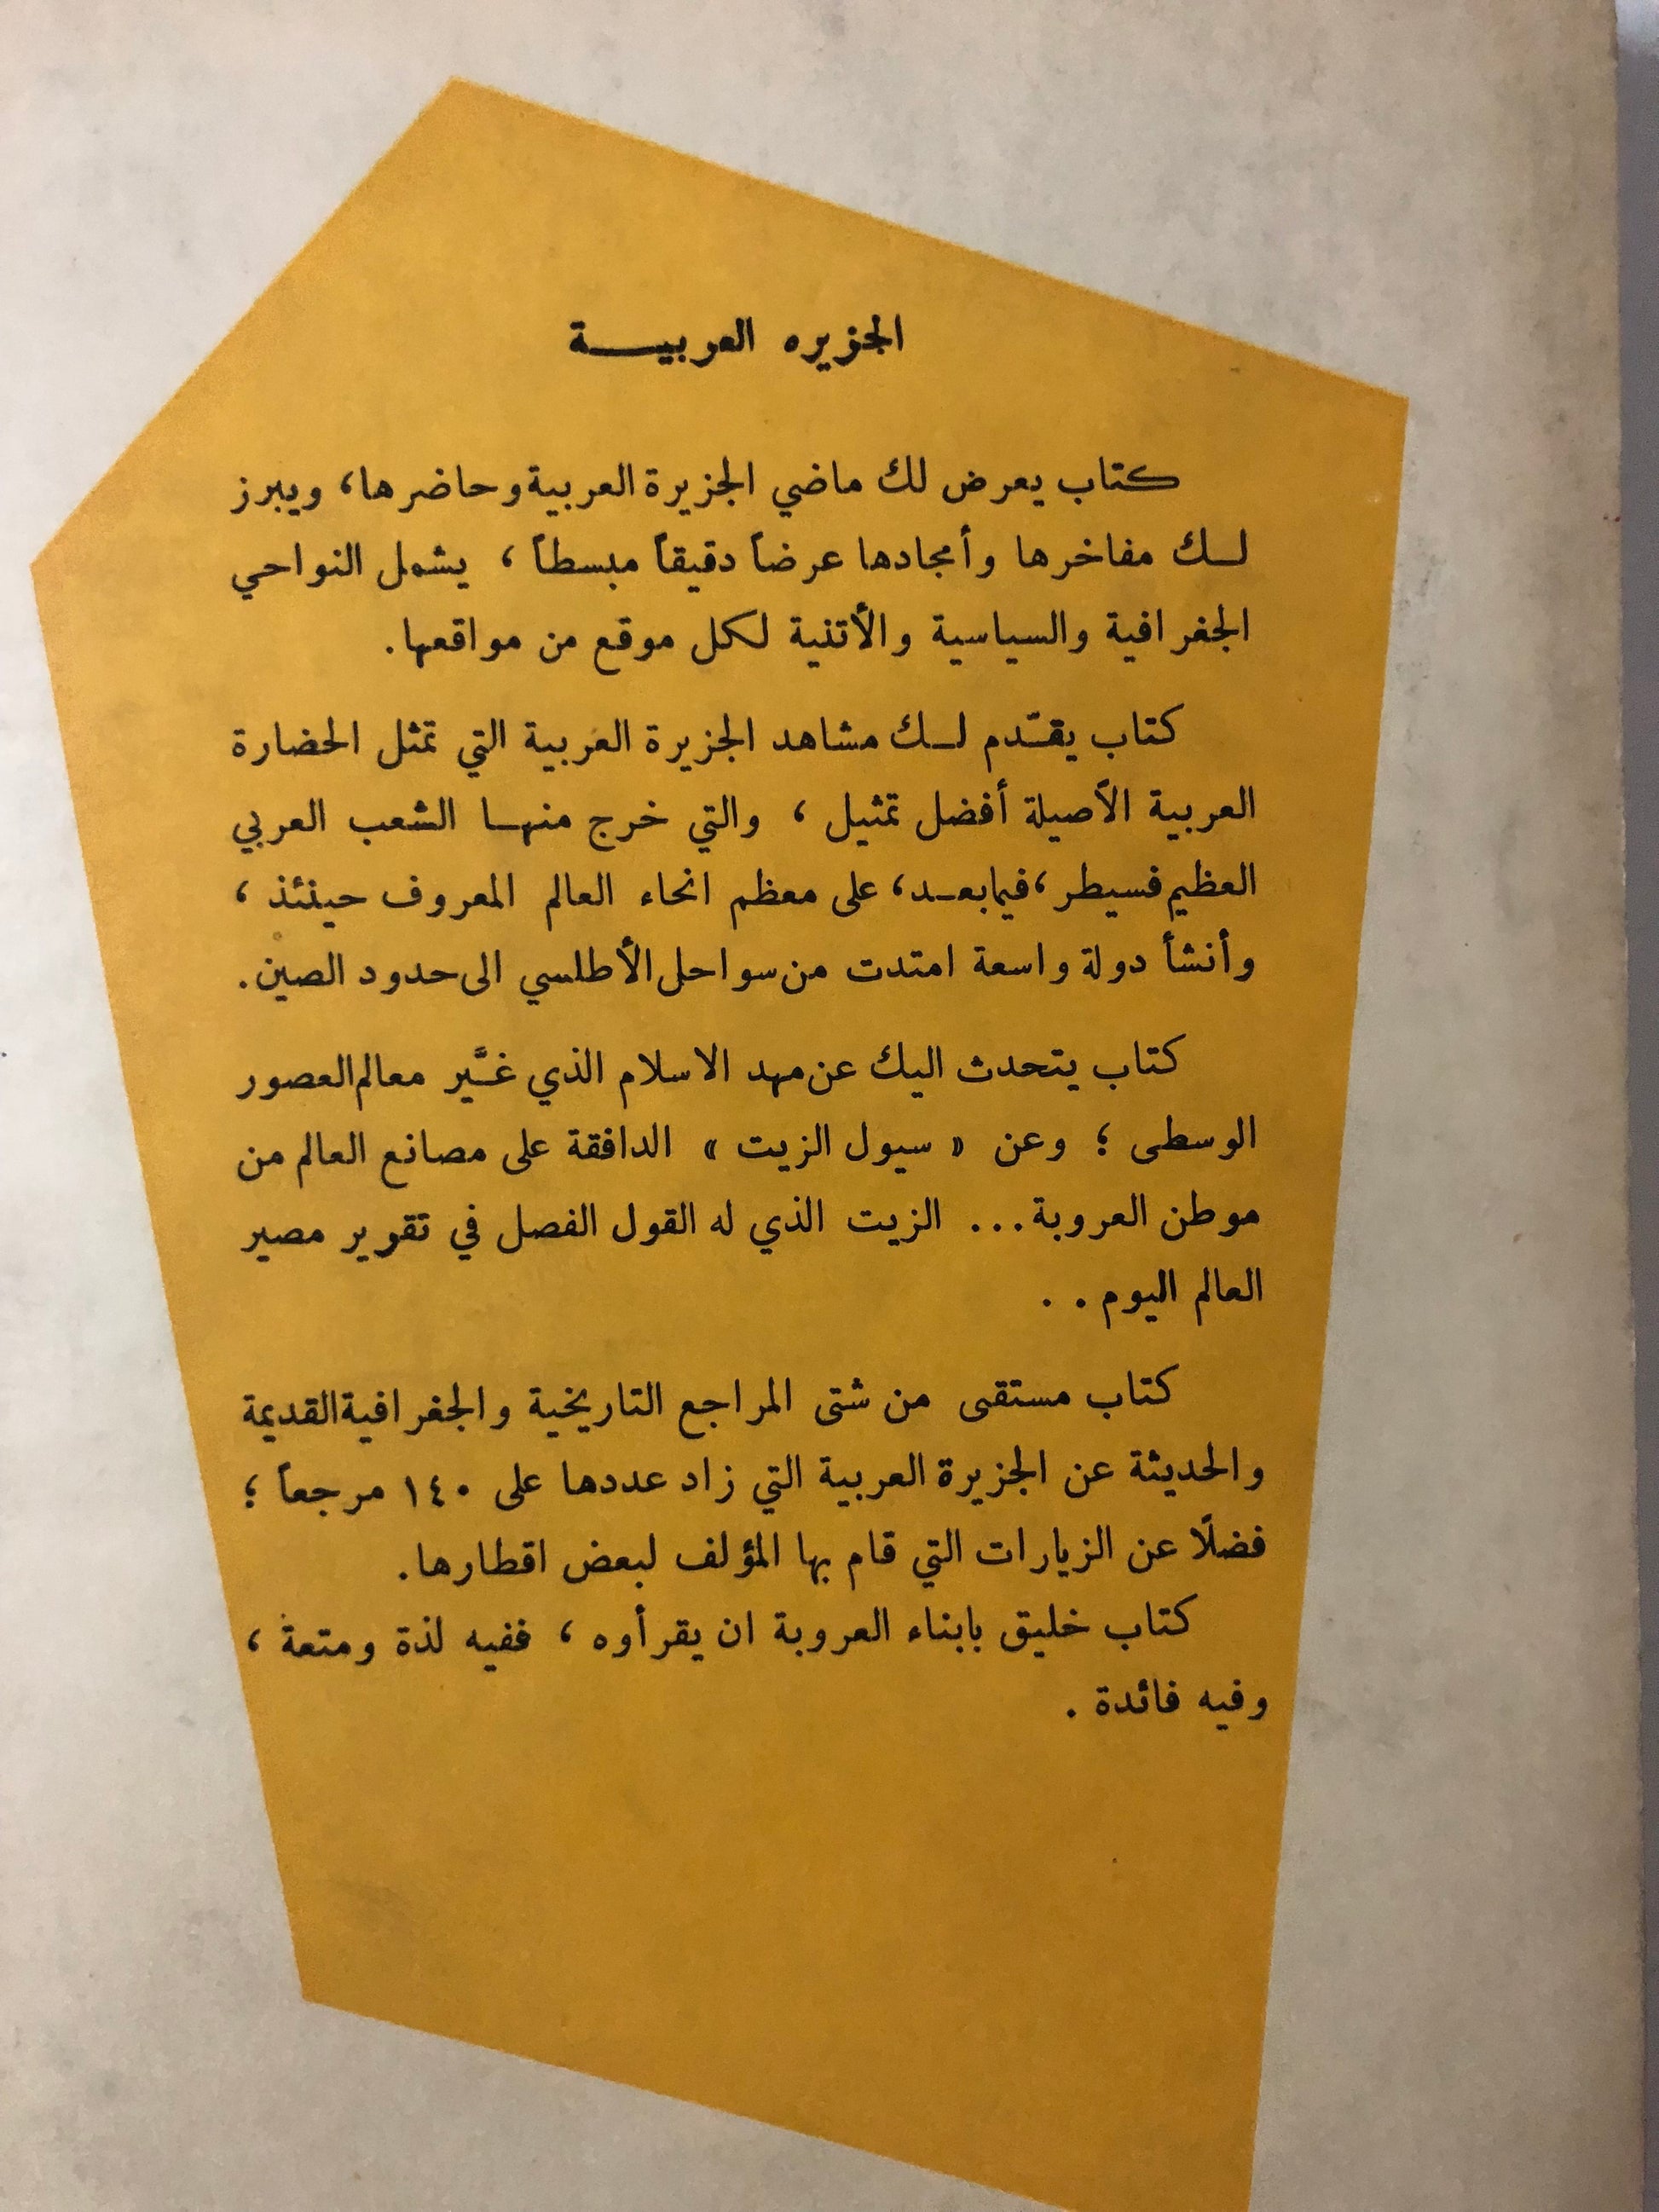 الجزيره العربيـــة
كتاب يعرض لك ماضي الجزيرة العربية وحاضرها، ويبرز
لـك مفاخرها وأمجادها عرضاً دقيقاً مبسطاً ، يشمل النواحي
الجغرافية والسياسية والأتنية لكل موقع من مواقعها.
كتاب يقـدّم لـك مشاهد الجزيرة العربية التي تمثل الحضارة
العربية الأصيلة أفضل تمثيل ، والتي خرج منهـا الشعب العربي
العظيم فسيطر ،فيما بعـد، على معظم انحاء العالم المعروف حينئذ ،
وأنشأ دولة واسعة امتدت من سواحل الأطلسي الى حدود الصين.
كتاب يتحدث اليك عن مهد الاسلام الذي غـيَّر معالم العصور
الوسطى ؛ وعن « سيول الزيت » الدافقة على مصانع العالم من
موطن العروبة... الزيت الذي له القول الفصل في تقرير مصير
العالم اليوم . .
كتاب مستقى من شتى المراجع التاريخية والجغرافية القديمة
والحديثة عن الجزيرة العربية التي زاد عددها على ١٤٠ مرجعاً ؛
فضلًا عن الزيارات التي قام بها المؤلف لبعض اقطارها.
كتاب خليق بابناء العروبة ان يقرأوه ، ففيه لذة ومتعة ،
وفيه فائدة .